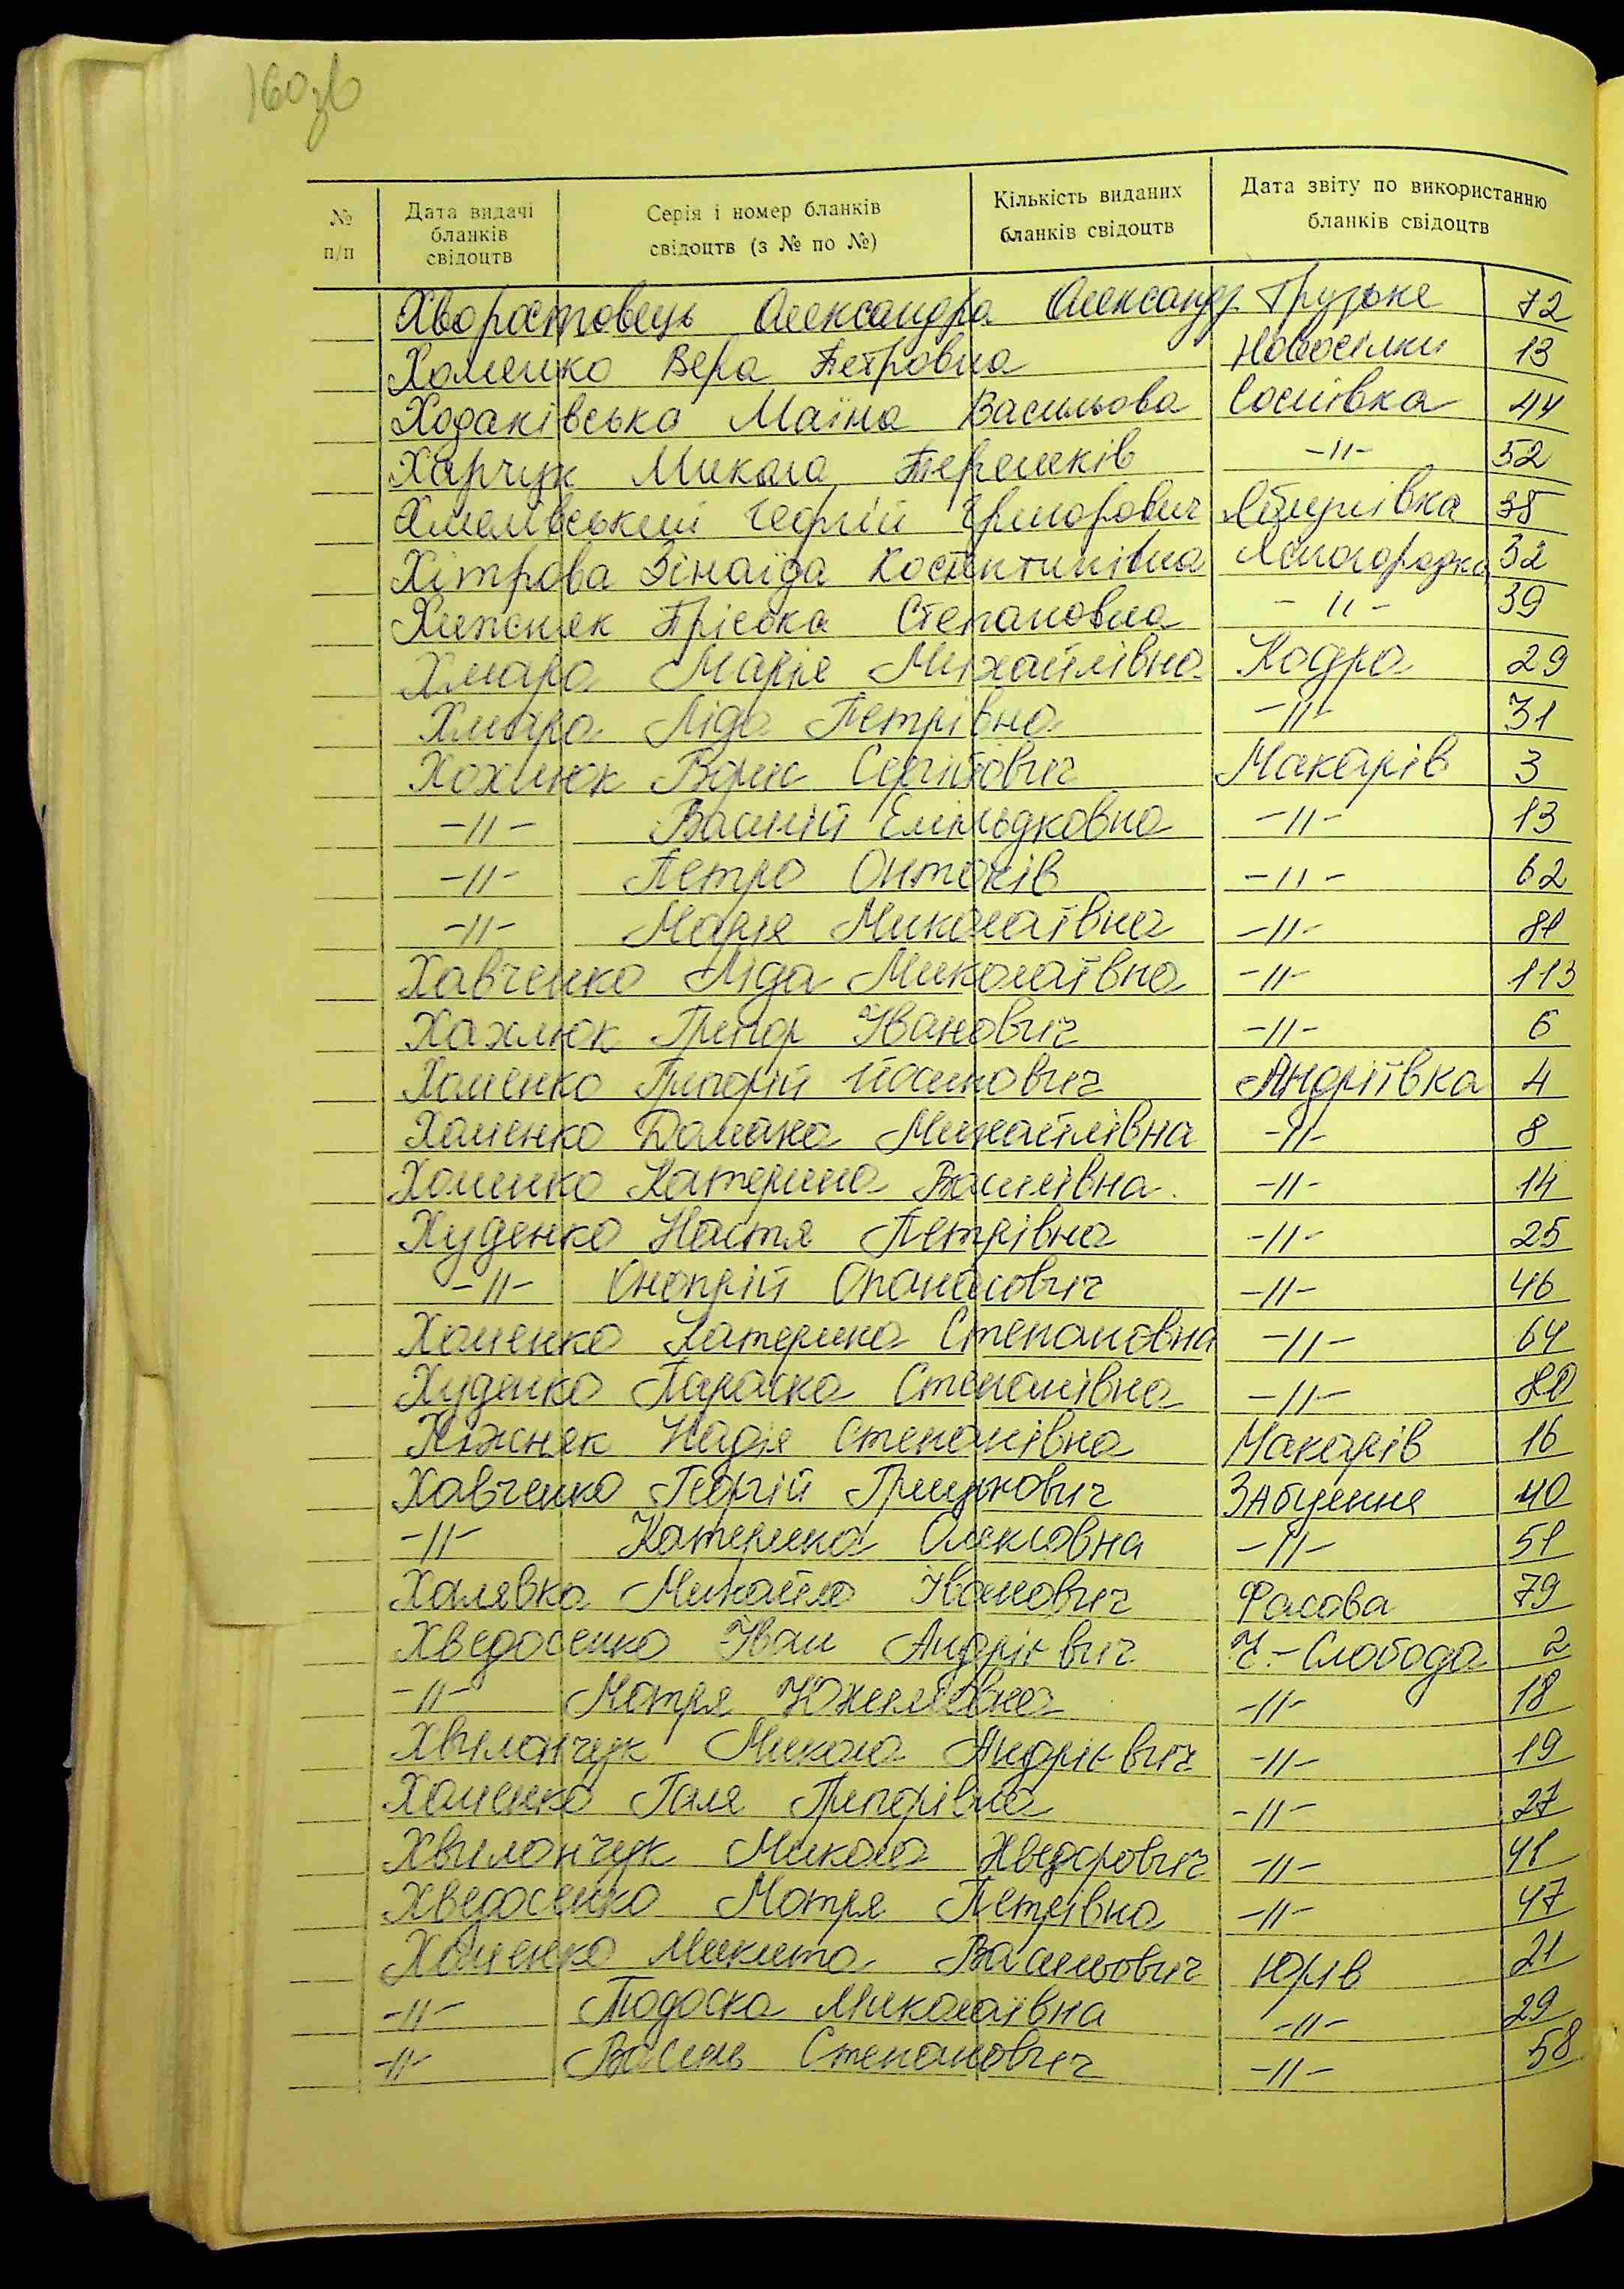 160зв
№ п/п Дата видачі бланків свідоцтв Серія і номер бланків свідоцтв (з № по №) Кількість виданих бланків свідоцтв Дата звіту по використанню бланків свідоцтв
Хворостовець Олександра Олександр. Грузьке 72
Хоменко Вера Петровна Новосілки 13
Ходаківська Маїна Васильова Соснівка 44
Харчук Микола -||- 52
Хмелівський Георгій Григорович 38
Хітрова Зінаїда Костянтинівна Ясногородка 32
Хижсняк Пріська Степановна -||- 39
Хмара Марія Михайлівна Кодра 29
Хмара Ліда Петрівна -||- 31
Хохлюк Борис Сергійович Макарів 3
-||- Василій -||- 13
-||- Петро Антонів -||- 62
-||- Марія Миколаївна -||- 81
Хавченко Ліда Миколаївна -||- 113
Хахлюк Григор Іванович -||- 6
Хоменко Григорій Йосипович Андріївка 4
Хоменко Домаха Михайлівна -||- 8
Хоменко Катерина Василівна -||- 14
Худенко Настя Петрівна -||- 25
-||- Онопрій Опанасович -||- 46
Хоменко Катерина Степановна -||- 64
Худенко Параска Степанівна -||- 80
Хіжсняк Надія Степанівна Макарів 16
Хавченко Георгій Грицькович Забуяння 40
-||- Катерина Олексовна -||- 51
Халявка Михайло Іванович Фасова 79
Хведосенко Іван Андрієвич Ч.-Слобода 2
-||- Мотря -||- 18
Хвиланчук Микола Андрієвич -||- 19
Хоменко Галя Григорівна -||- 27
Хвиланчук Микола Хведорович -||- 41
Хведосенко Мотря Петрівна -||- 47
Хоменко Микита Васильович Юрів 21
-||- Тодоска Миколаївна -||- 29
-||- Василь Степанович -||- 58